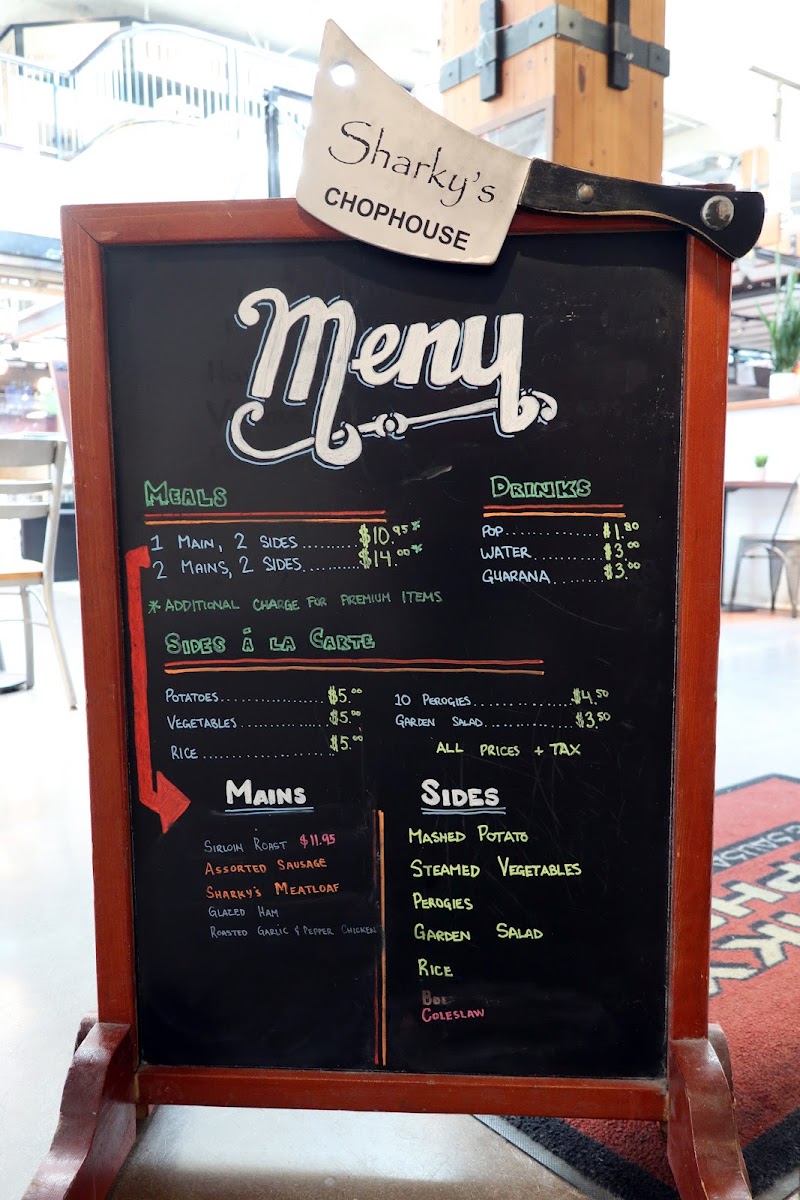 Sharky's
CHOPHOUSE
Menu
MEALS
1 MAIN, 2 SIDES..........$10.95*
2 MAINS, 2 SIDES..........$14.00*
* ADDITIONAL CHARGE FOR PREMIUM ITEMS
DRINKS
POP..............$1.80
WATER..........$3.00
GUARANA.......$3.00
SIDES Á LA CARTE
POTATOES..................$5.00
VEGETABLES...............$5.00
RICE......................$5.00
10 PEROGIES................$4.50
GARDEN SALAD..............$3.50
ALL PRICES + TAX
MAINS
SIRLOIN ROAST $11.95
ASSORTED SAUSAGE
SHARKY'S MEATLOAF
GLAZED HAM
ROASTED GARLIC & PEPPER CHICKEN
SIDES
MASHED POTATO
STEAMED VEGETABLES
PEROGIES
GARDEN SALAD
RICE
COLESLAW